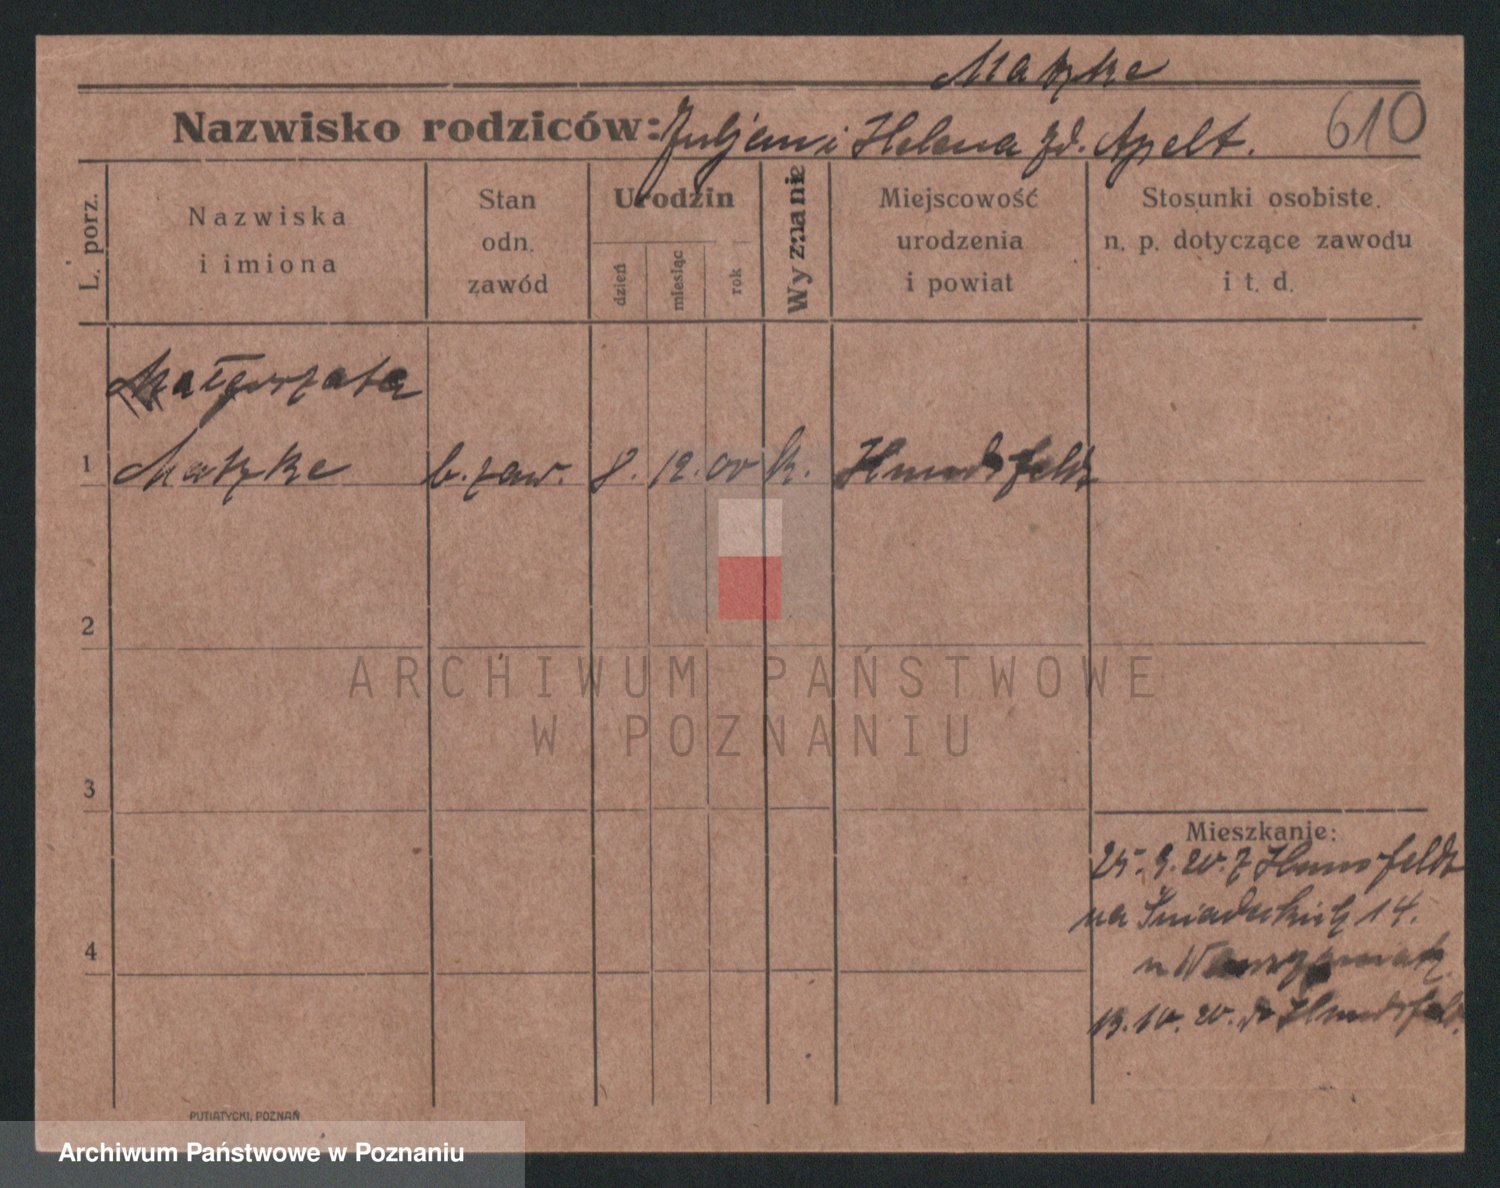 Matzke
Nazwisko rodziców: Juljan i Helena zd. Apelt.
610
L. porz.
Nazwiska
i imiona
Stan
odn.
zawód
Urodzin
dzień
miesiąc
rok
Wyznanie
Miejscowość
urodzenia
i powiat
Stosunki osobiste.
n. p. dotyczące zawodu
i t. d.
Małgorzata
1 Matzke b. zaw. 8. 12. 00 k. Hundsfeldt
2
ARCHIWUM PAŃSTWOWE
W POZNANIU
3
Mieszkanie:
25. 9. 20. z Hunsfeldt
na Śniadeckich 14.
4
13. 10. 20. do Hundsfeld.
PUTIATYCKI, POZNAŃ
Archiwum Państwowe w Poznaniu